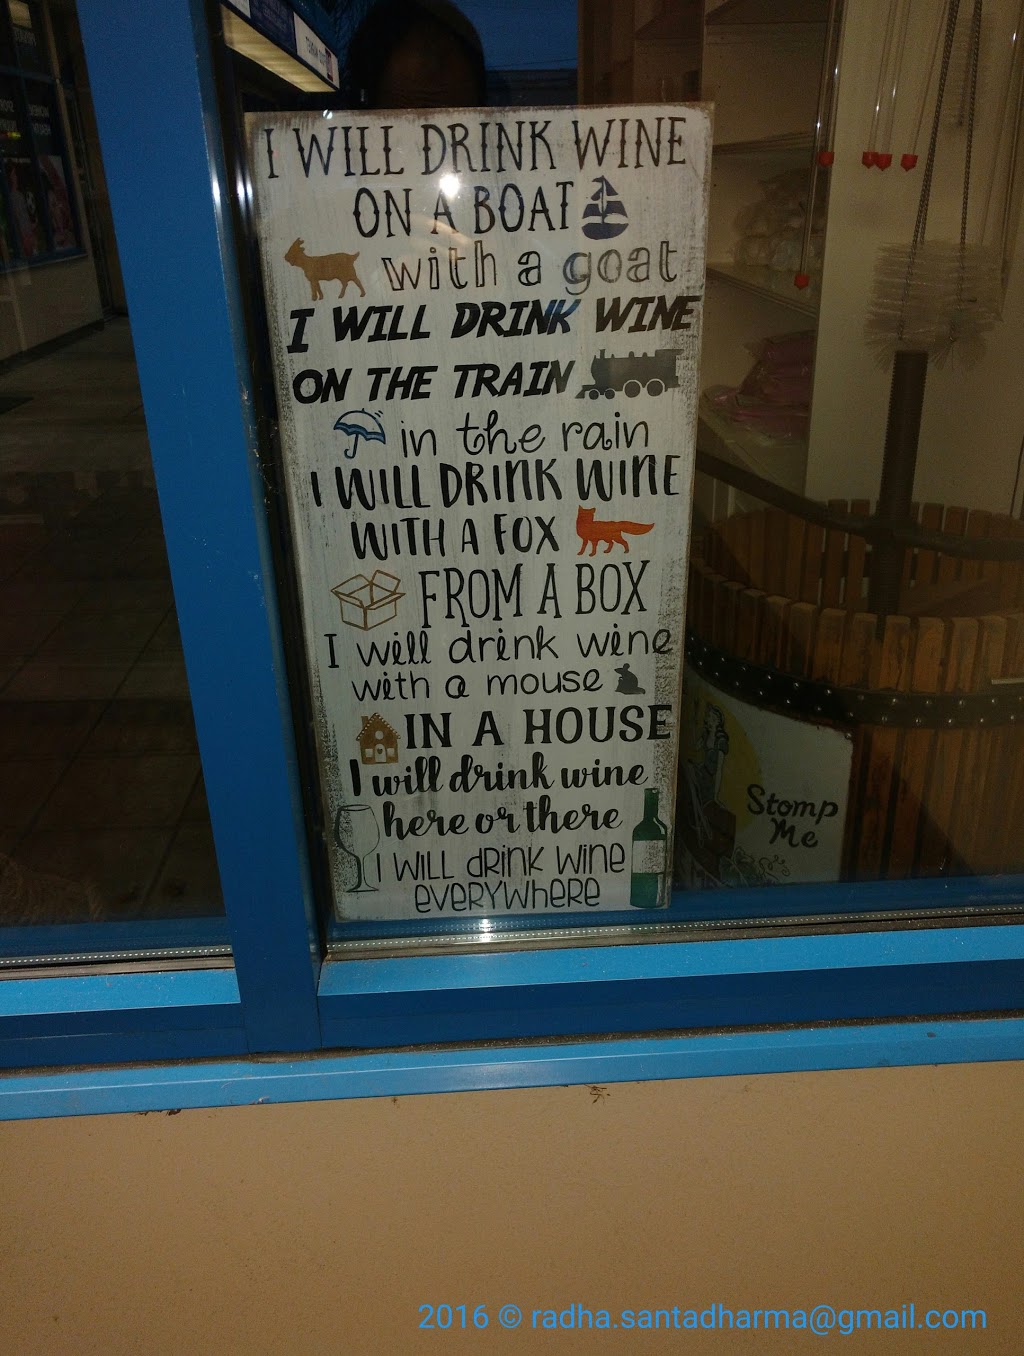 I WILL DRINK WINE
ON A BOAT
with a goat
I WILL DRINK WINE
ON THE TRAIN
in the rain
I WILL DRINK WINE
WITH A FOX
FROM A BOX
I will drink wine
with a mouse
IN A HOUSE
I will drink wine
here or there
I WILL drink wine
everywhere
Stomp
Me
2016 © radha.santadharma@gmail.com